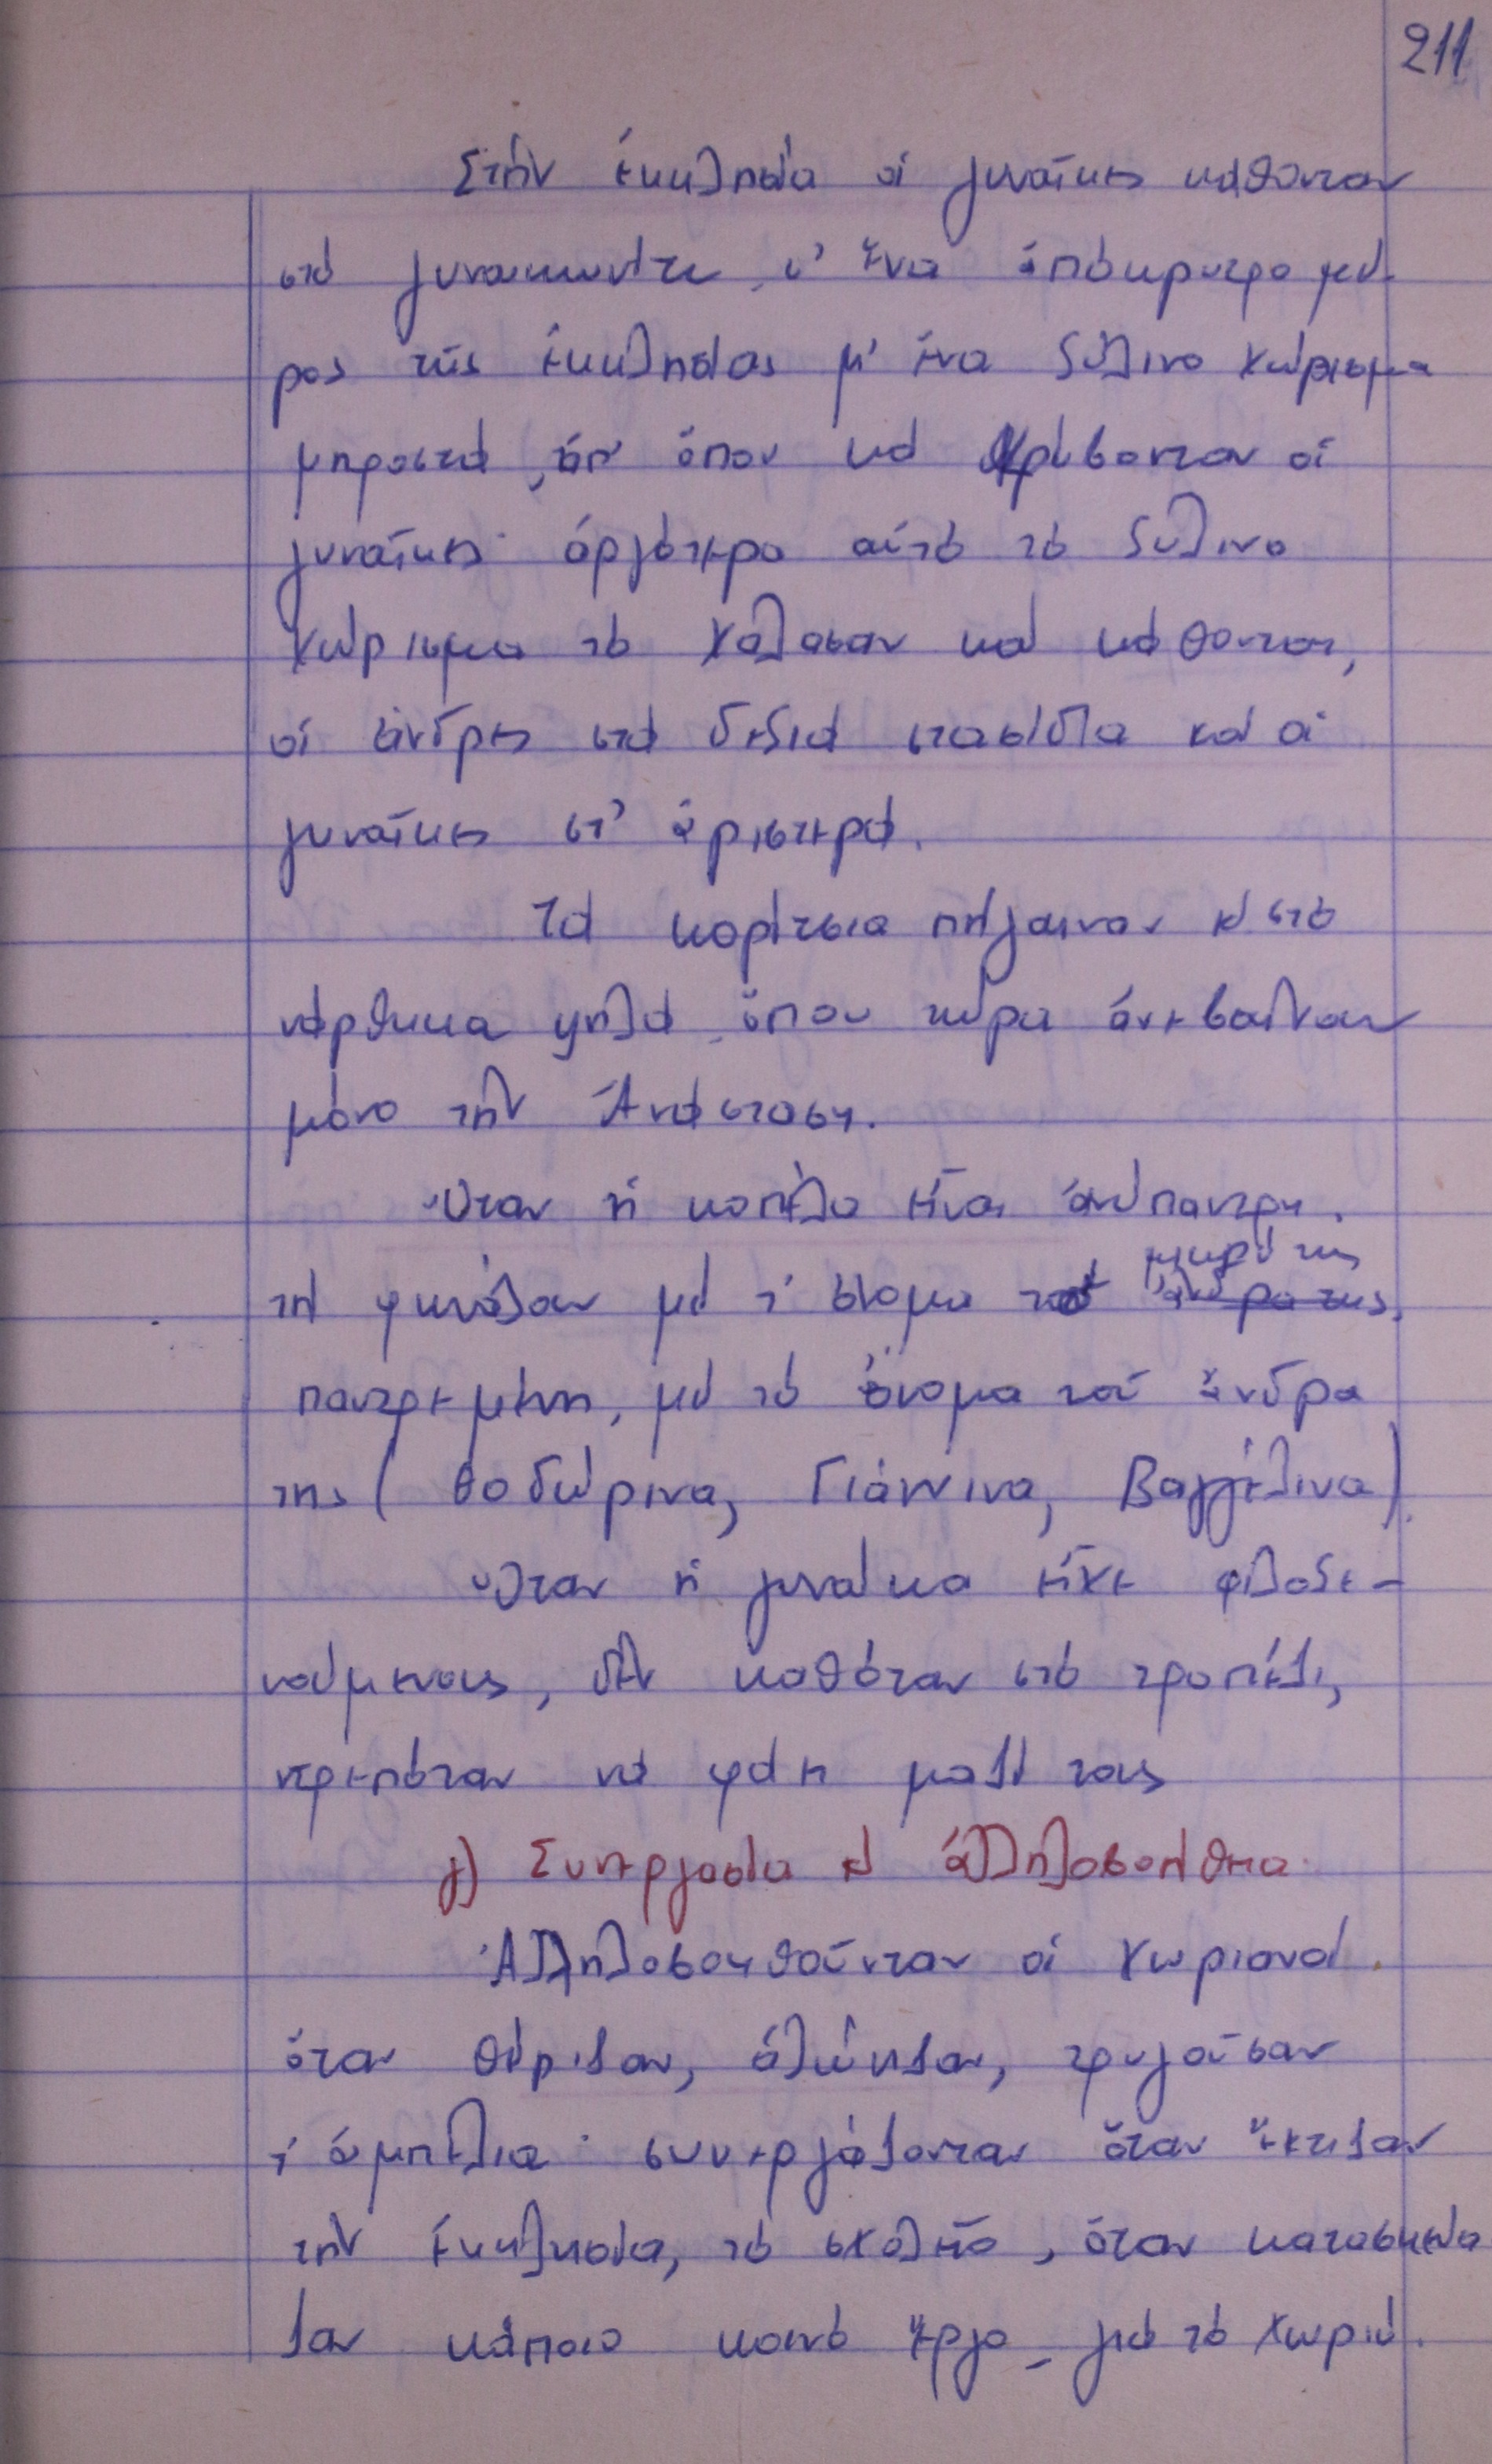 211
Στήν ἐκκλησία οἱ γυναῖκες κάθονταν
στό γυναικωνίτη, σ' ἕνα ἀπόκρυφο μέ-
ρος τῆς ἐκκλησίας μ' ἕνα ξύλινο χώρισμα
μπροστά, ἀπ' ὅπου κα κρύβονταν οἱ
γυναῖκες· ἀργότερα αὐτό τό ξύλινο
χώρισμα τό χάλασαν καί κάθονται,
οἱ ἄνδρες στά δεξιά στασίδια καί οἱ
γυναῖκες στ' ἀριστερά.
Τά κορίτσια πήγαιναν κ' στό
νάρθηκα ψηλά, ὅπου τώρα ἀνεβαίνουν
μόνο τήν Ἀνάσταση.
Ὅταν ἡ κοπέλα εἶναι ἀνύπαντρη,
τή φωνάζουν μέ τ' ὄνομα
μικρό της
ἄνδρα της,
παντρεμένη, μέ τό ὄνομα τοῦ ἄνδρα
της (Θοδώρινα, Γιάννινα, Βαγγέλινα).
Ὅταν ἡ γυναίκα εἶχε φιλοξε-
νούμενους, δέν καθόταν στό τραπέζι,
ντρεπόταν νά φάη μαζί τους
γ) Συνεργασία κ' ἀλληλοβοήθεια.
Ἀλληλοβοηθοῦνταν οἱ χωριανοί
ὅταν θέριζαν, ἁλώνιζαν, τρυγοῦσαν
τ' ἀμπέλια· συνεργάζονταν ὅταν ἔκτιζαν
τήν ἐκκλησία, τό σχολεῖο, ὅταν κατασκεύα
ζαν κάποιο κοινό ἔργο γιά τό χωριό.